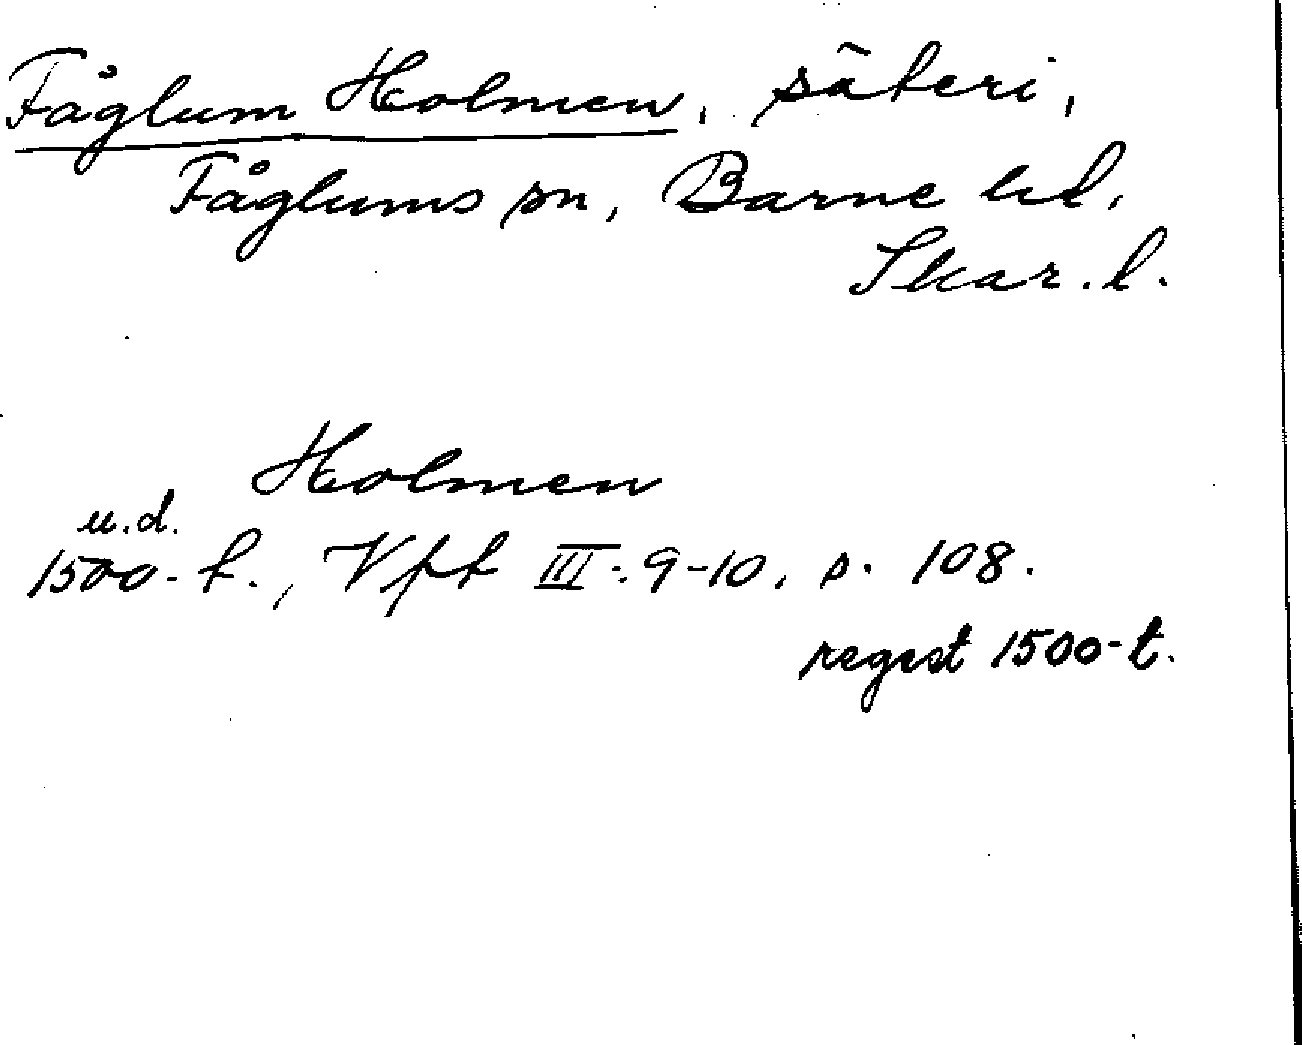 Fåglum Holmen, säteri,
Fåglums sn, Barne hd,
Skar. l.
Holmen
u.d.
1500-t., Vft III:9-10, s. 108.
regest 1500-t.